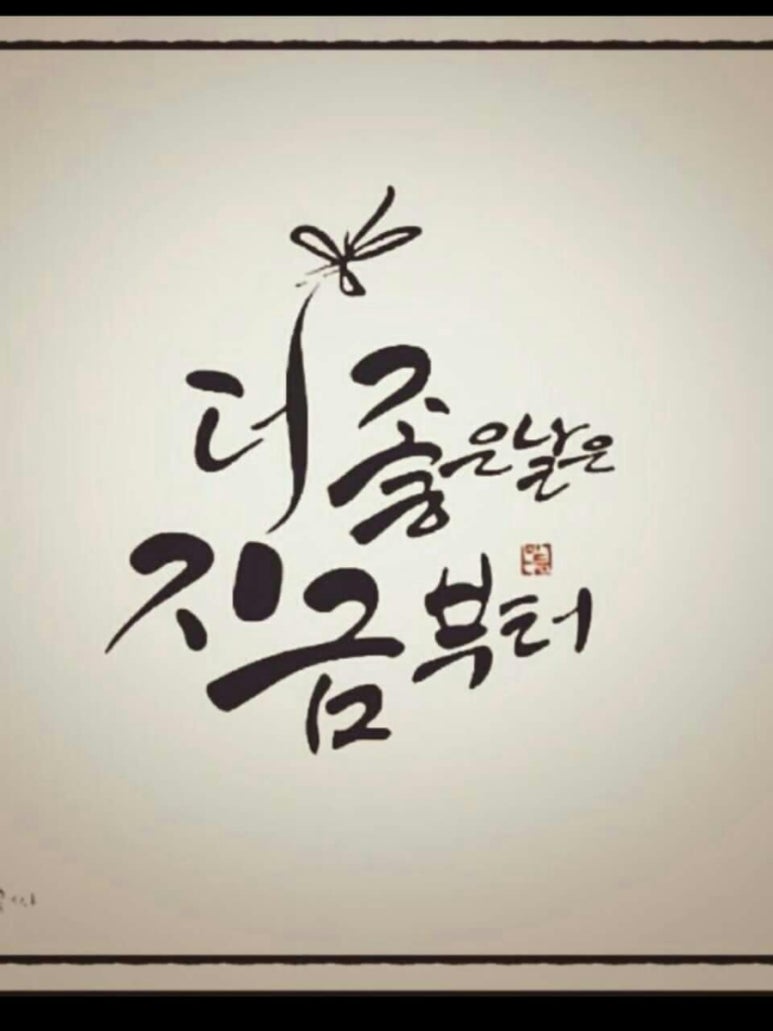 더 좋은날은
지금부터